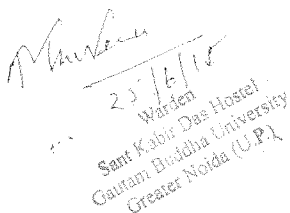 25/6/15
Warden
Sant Kabir Das Hostel
Gautam Buddha University
Greater Noida (U.P.)